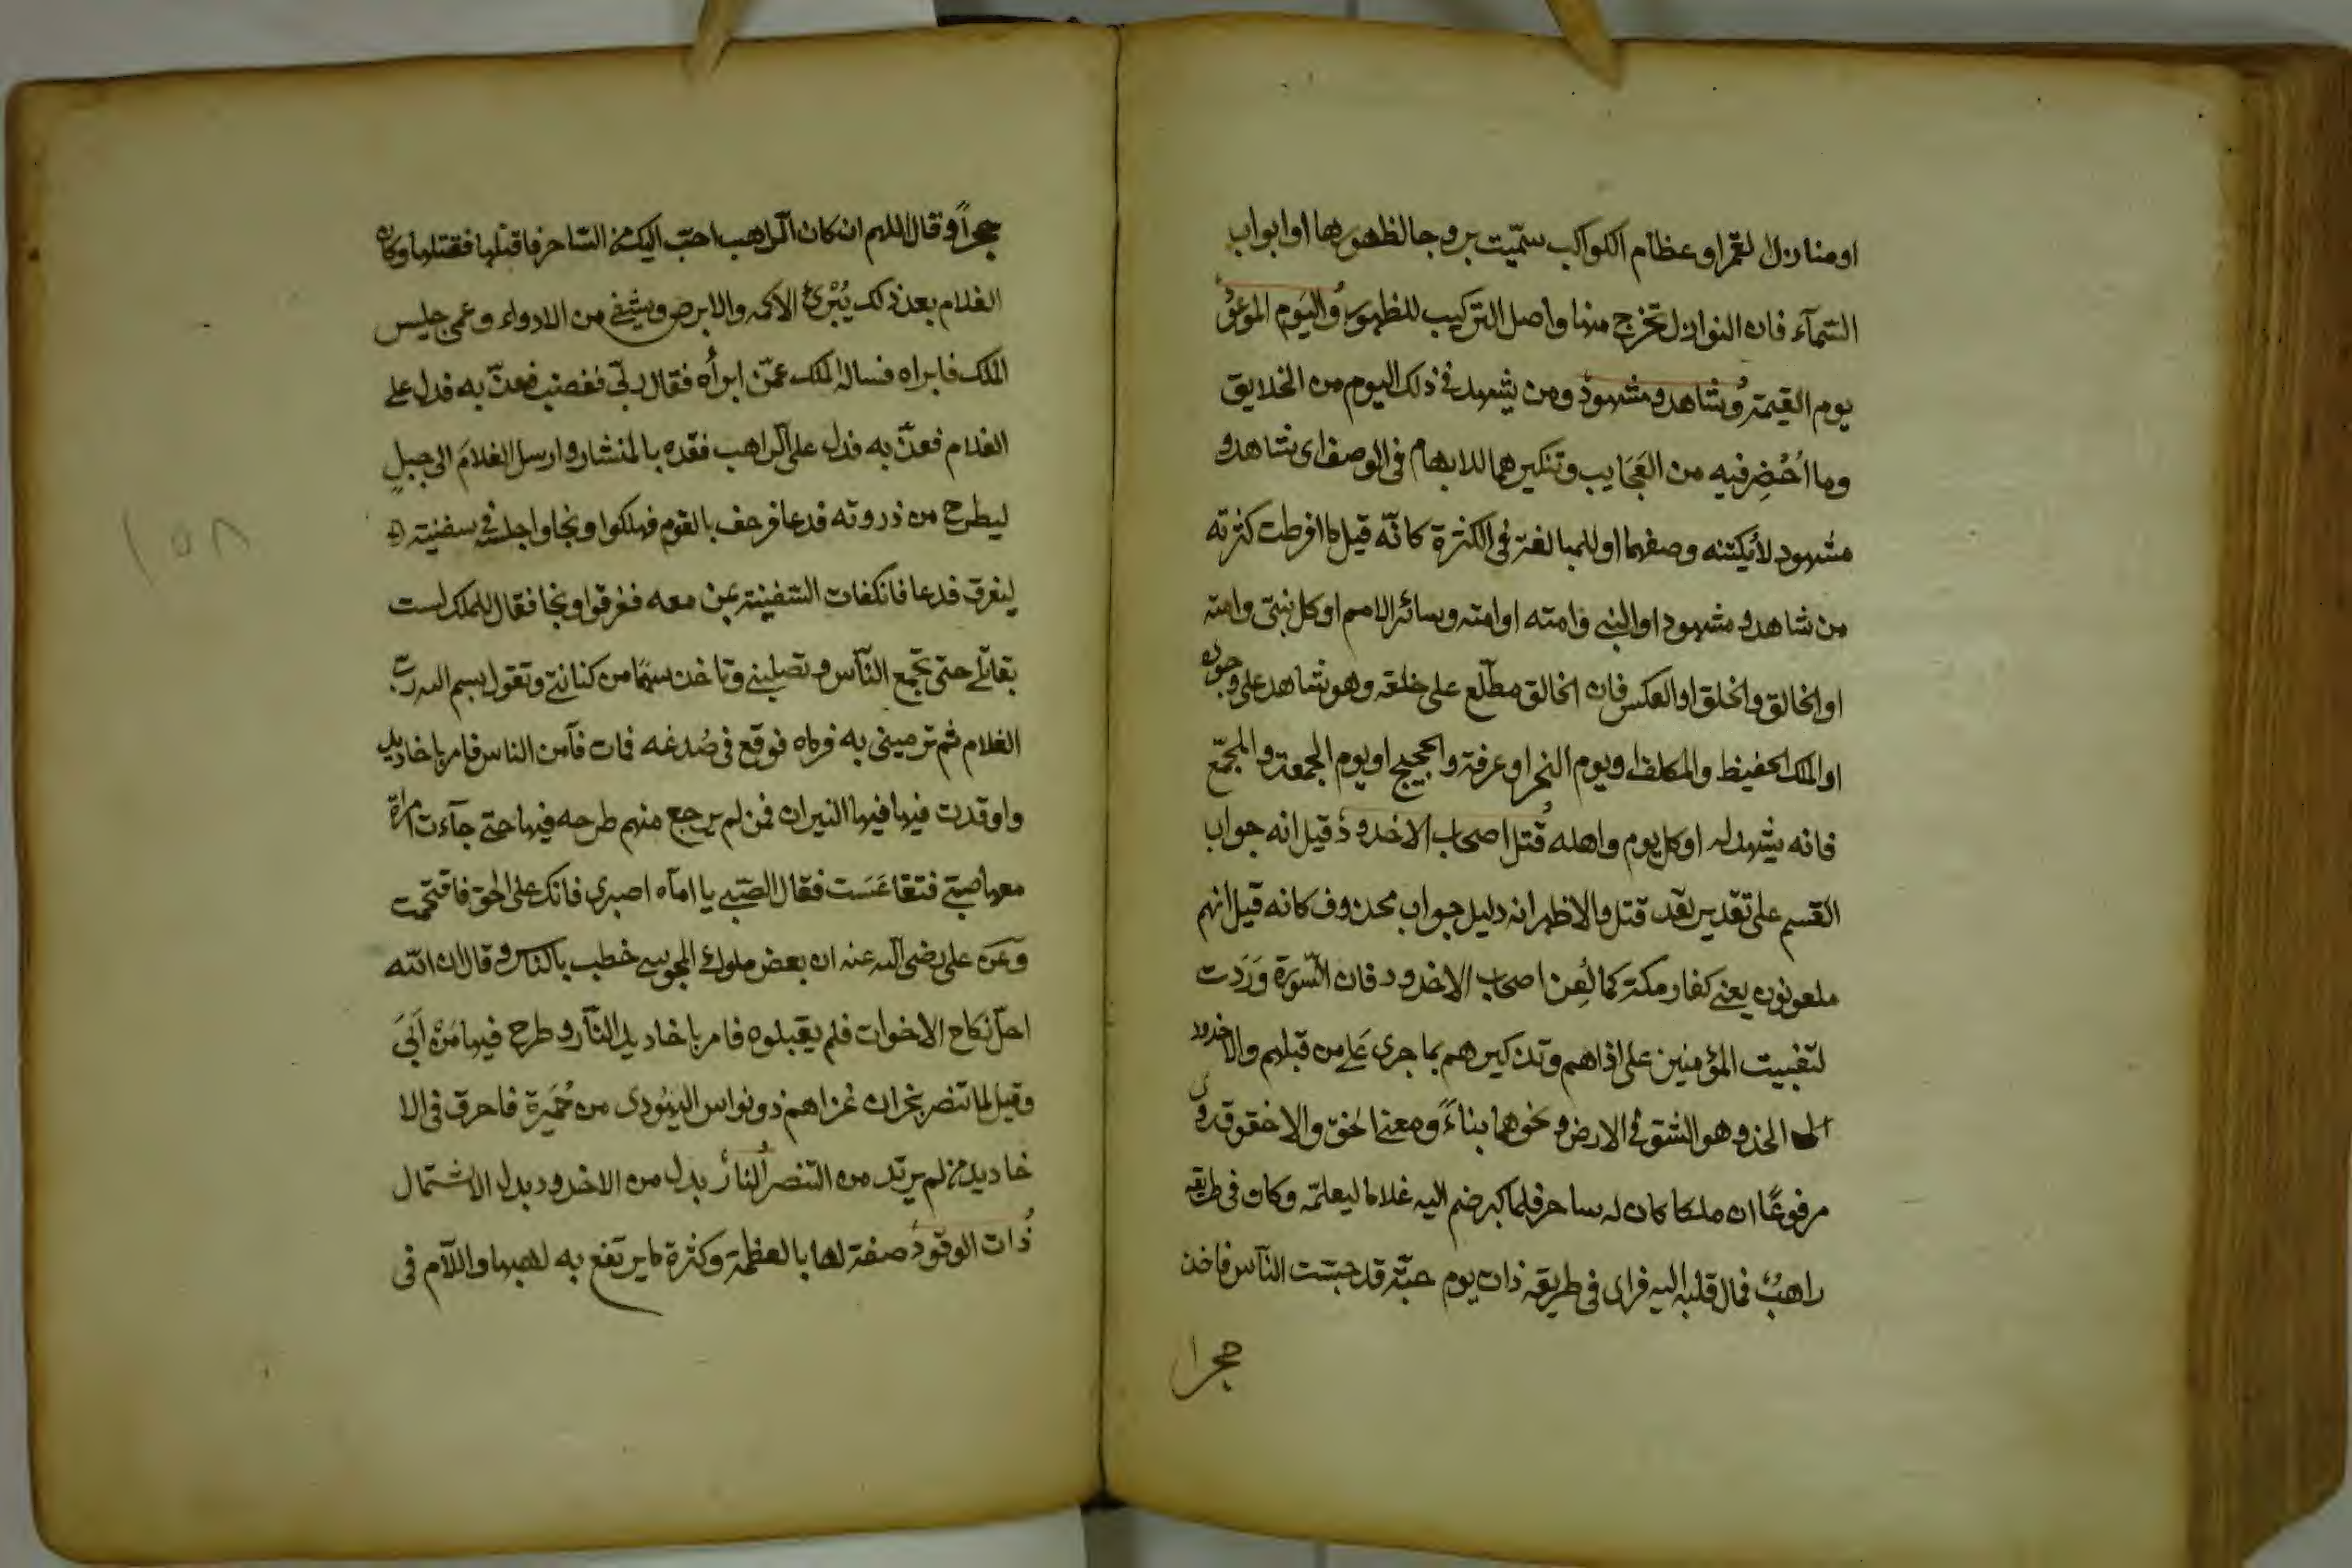 او منازل القمر او عظام الكواكب سمّيت بروجا لظهورها او ابواب
السّمآء فان النوازل تخرج منها واصل التركيب للظهور واليَوم الموعُود
يوم القيمة وشاهد ومشهود ومن يشهد في ذلك اليوم من الخلايق
وما اُحْضِر فيه من العَجَايب وتنكيرهما للابهام في الوصف اى شاهد و
مشهود لا يكتنه وصفهما او للمبالغة في الكثرة كانّه قيل ما افرطت كثرته
من شاهد ومشهود او النبى وامته او امته وسائر الامم او كل نبىّ وامته
او الخالق والخلق او العكس فان الخالق مطّلع على خلقه وهو شاهد على وجوده
او الملك الحفيظ والمكلف او يوم النحر او عرفة والحجيج او يوم الجمعة والمجمّع
فانه يشهد له او كل يوم واهله قُتل اصحاب الاخدود قيل انه جواب
القسم على تقدير لقد قتل والاظهر انه دليل جواب محذوف كانه قيل انهم
ملعونون يعنى كفار مكة كما لُعِن اصحاب الاخدود فان السّورة وَرَدت
لتثبيت المؤمنين على اذاهم وتذكيرهم بما جرى على من قبلهم والاخدود
الخد وهو الشق في الارض ونحوهما بناءً ومعنى الخقّ والاخقوق روى
مرفوعًا ان ملكا كان له ساحر فلما كبر ضم اليه غلاما ليعلمّه وكان في طريقه
راهبٌ فمال قلبه اليه فراى في طريقه ذات يوم حيّة قد حبست النآس فاخذ
حجرا
حجراً وقال اللهم ان كان الرّاهب احبّ اليك من السّاحر فاقتلها فقتلها وكان
الغلام بعد ذلك يُبْرئ الاكمه والابرص ويشفى من الادواء وعمى جليس
الملك فابراه فساله الملك عمّن ابرأه فقال ربّى فغضب فعذّبه فدل على
الغلام فعذّبه فدل على الرّاهب فقدّه بالمنشار وارسل الغلامَ الى جبلٍ
ليطرح من ذروته فدعا فرجف بالقوم فهلكوا ونجا واجلسه في سفينة
ليغرق فدعا فانكفات السّفينة بمن معه فغرقوا ونجا فقال للملك لست
بقاتلى حتى تجمع النّاس وتصلبنى وتاخذ سهمًا من كنانتى وتقول بسم الله ربّ
الغلام ثم ترمينى به فرماه فوقع في صُدغه فمات فآمن الناس فامر باخاديد
واوقدت فيها فيها النيران فمن لم يرجع منهم طرحه فيها حتى جآءت امراة
معها صبىّ فتقاعَسَت فقال الصّبى يا امآه اصبرى فانك على الحق فاقتحمت
وَعَن على رضى الله عنه ان بعض ملوك المجوس خطب بالناس وقال ان الله
احلّ نكاح الاخوات فلم يقبلوه فامر باخاديد النّار وطرح فيها مَنْ اَبَىَ
وقيل لما تنصر نجران غزاهم ذو نواس اليهودى من حُمَيرة فاحرق في الا
خاديد من لم يرتد من التنصر النار بدل من الاخدود بدل الاشتمال
ذات الوقود صفة لها بالعظمة وكثرة ما يرتفع به لهبها واللاّم فى
١٥٨